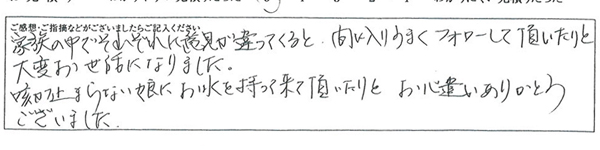 ご感想・ご指摘などがございましたらご記入ください
家族の中でそれぞれに意見が違ってくると、間に入りうまくフォローして頂いたりと
大変お世話になりました。
咳が止まらない娘にお水を持って来て頂いたりと お心遣いありがとう
ございました。